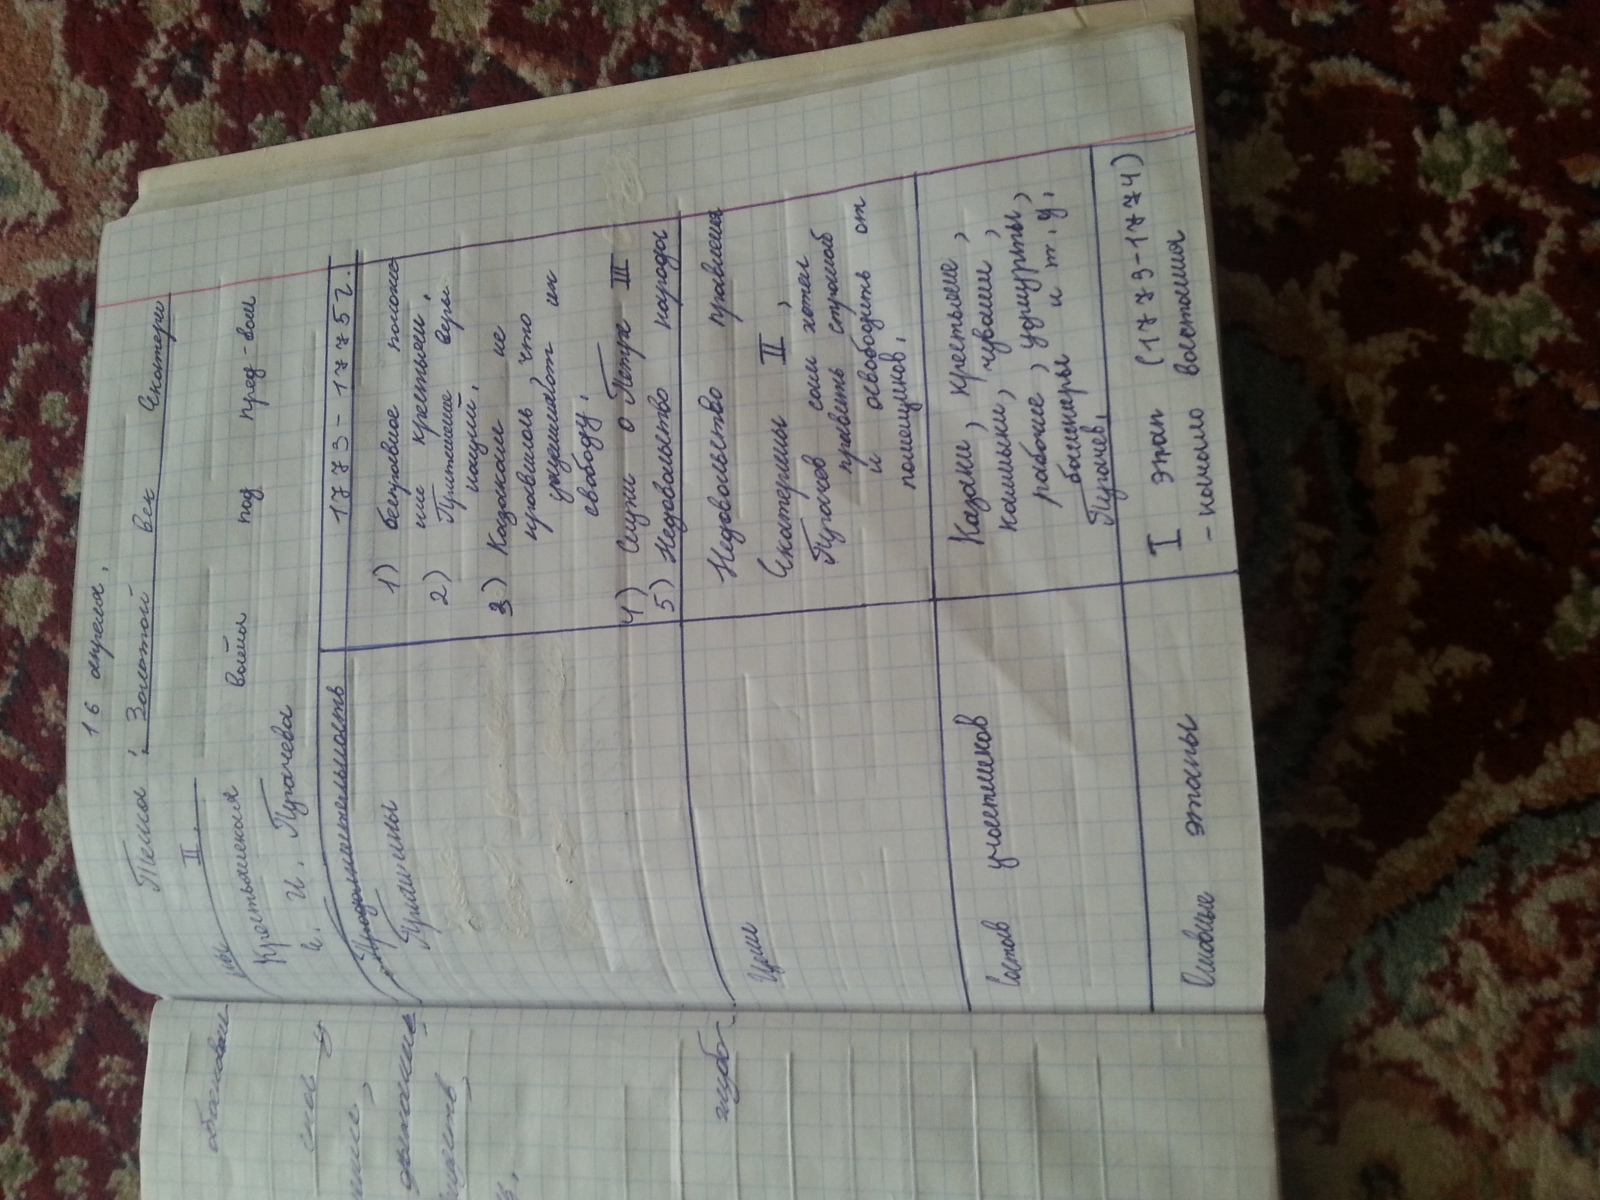 16 апреля.
Тема: Золотой век Екатери
ны II.
Крестьянская война под пред-вом
Е. И. Пугачева
Продолжительность 1773-1775г.
Причины
1) бесправное положе
ние крестьян.
2) Притяние веры
нации.
3) Казакам не
нравилось, что
ущемляют их
свободу.
4) Слухи о Петре III
5) Недовольство народа
Цели
Недовольство правления
Екатерины II,
Пугачев сам хотел
править страной
и освободить от
помещиков.
Состав участников
Казаки, крестьяне,
калмыки, чуваши,
рабочие, удмурты,
башкиры и т.д.
Пугачев.
Главные этапы
I этап (1773-1774)
- начало востания